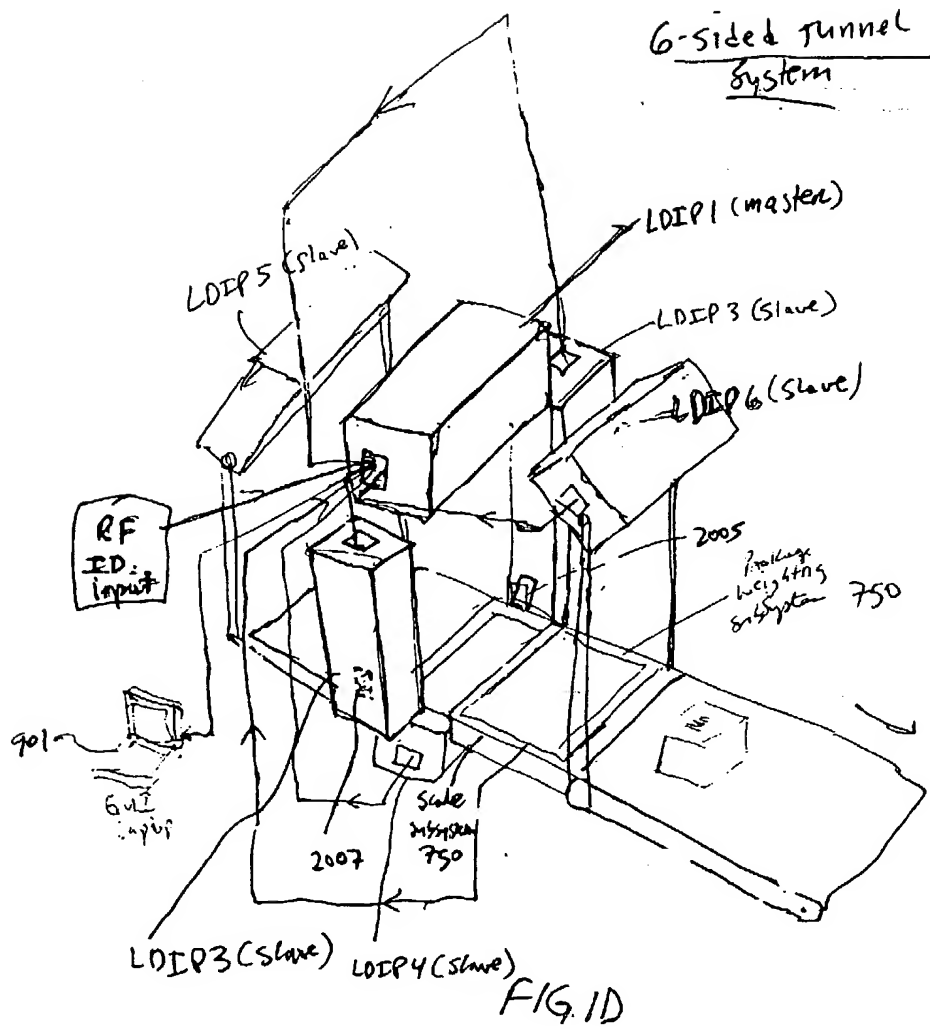 6-sided tunnel
System
LDIP1 (master)
LDIP5 (Slave)
LDIP3 (Slave)
LDIP6 (Slave)
RF
ID.
input
2005
Package
weighing
subsystem 750
901
GUI
input
Scale
subsystem
750
2007
LDIP3 (Slave)
LDIP4 (Slave)
FIG. 1D